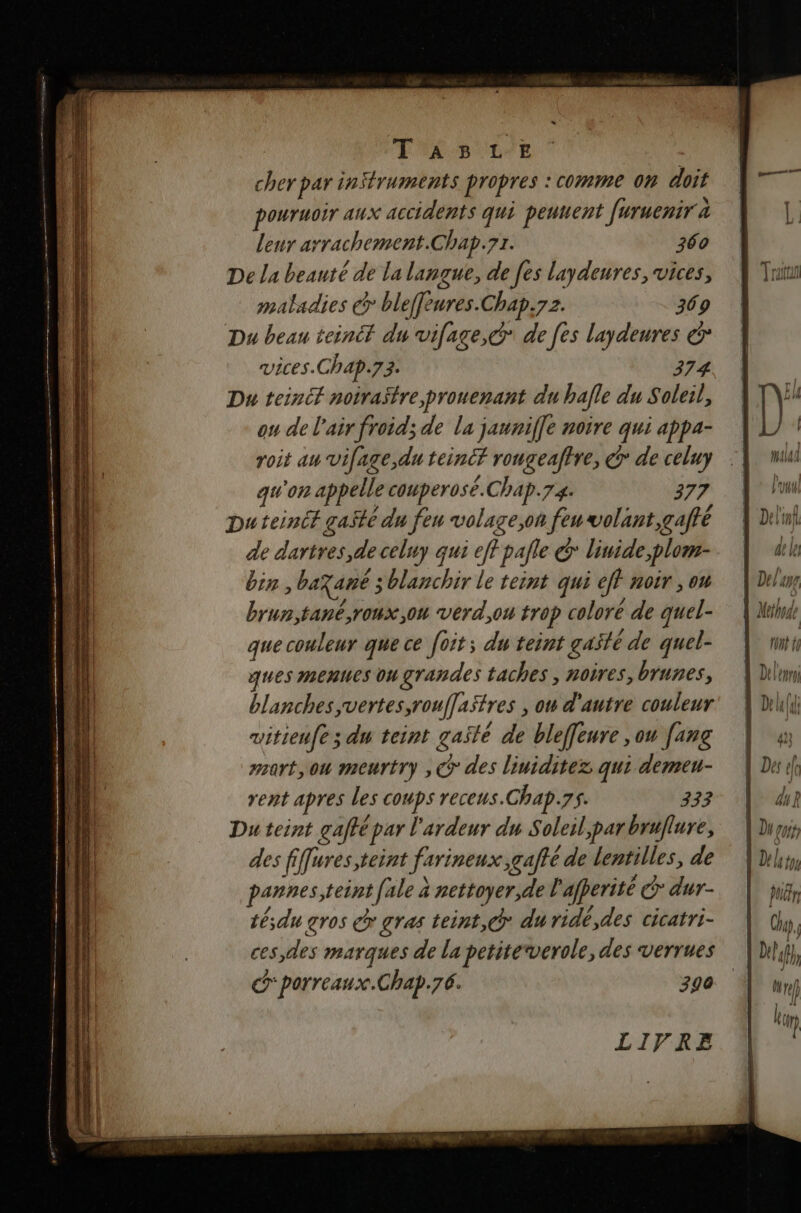 TABLE
cher par inſtruments propres : comme on doit
pouruoir aux accidents qui peuuent ſuruenir à
leur arrachement.Chap.71. 360
De la beauté de la langue, de ſes laydeures, vices,
maladies & bleſſeures.Chap.72. 369
Du beau teinct du viſage,& de ſes laydeures &
vices.Chap.73. 374
Du teinct noiraſtre,prouenant du haſle du Soleil,
ou de l'air froid; de la jauniſſe noire qui appa-
roit au viſage,du teinct rougeaſtre, & de celuy
qu'on appelle couperosé.Chap.74. 377
Du teinct gaſté du feu volage,on feu volant,gaſté
de dartres,de celuy qui eſt paſle & liuide,plom-
bin , bazané ; blanchir le teint qui eſt noir , ou
brun,tané,roux,ou verd,ou trop coloré de quel-
que couleur que ce ſoit; du teint gaſté de quel-
ques menues ou grandes taches , noires, brunes,
blanches,vertes,rouſſaſtres , ou d'autre couleur
vitieuſe ; du teint gaſté de bleſſeure , ou ſang
mort, ou meurtry , & des liuiditez qui demeu-
rent apres les coups receus.Chap.75. 333
Du teint gaſté par l'ardeur du Soleil,par bruſlure,
des fiſſures,teint farineux,gaſté de lentilles, de
pannes,teint ſale à nettoyer,de l'aſperité & dur-
té;du gros & gras teint,& du ridé,des cicatri-
ces,des marques de la petite verole, des verrues
& porreaux.Chap.76. 390
LIVRE